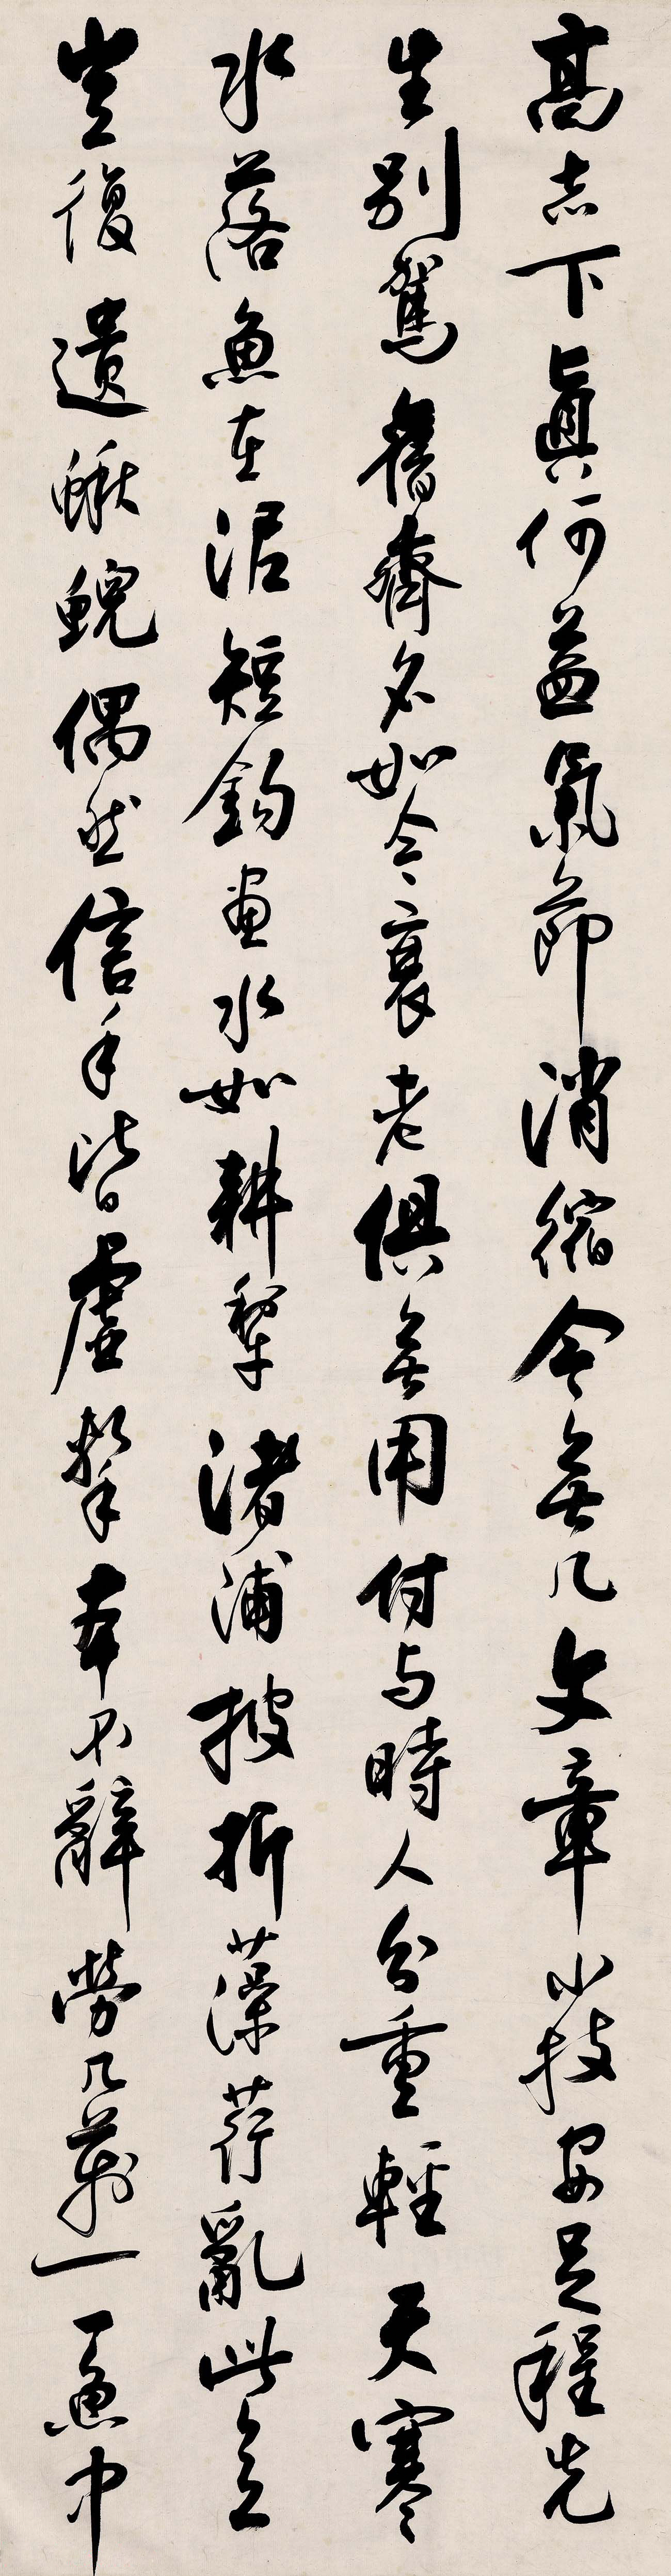 高志下真何益氣節消縮今無几文章小技安足程先
生別駕舊齊名如今衰老俱無用付與時人分重輕天寒
水落魚在泥短鈎畫水如耕犁渚浦披折藻荇亂此意
豈復遺鰍鯢偶然信手皆虛擊本不辭勞几萬一一魚中